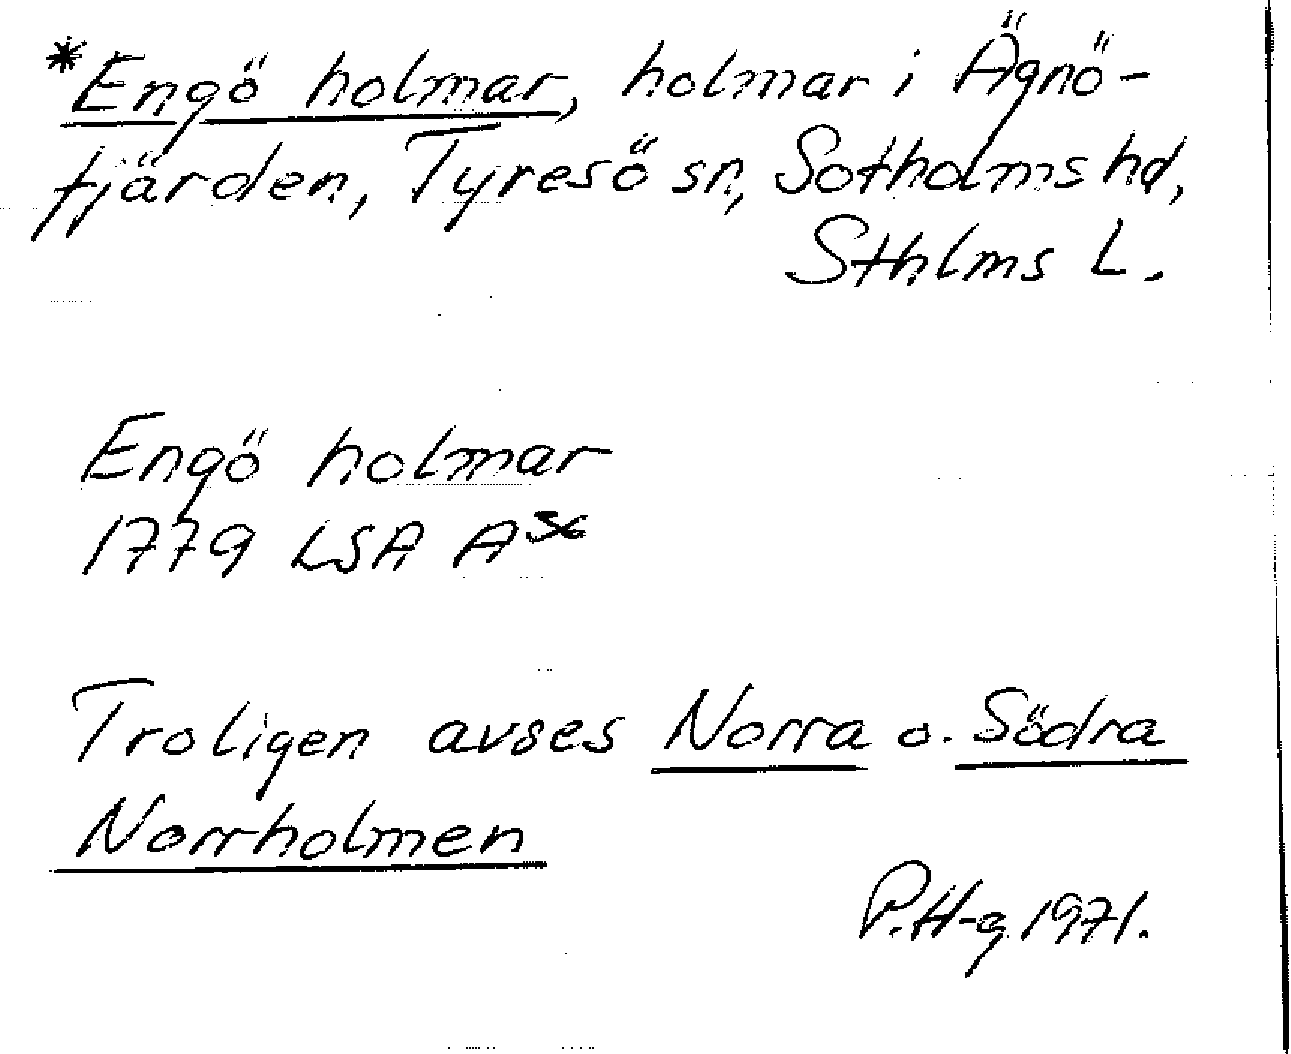 *Engö holmar, holmar i Ägnö-
fjärden, Tyresö sn, Sotholms hd,
Sthlms L.
Engö holmar
1779 LSA A 36
Troligen avses Norra o. Södra
Norrholmen
P.H-g 1971.